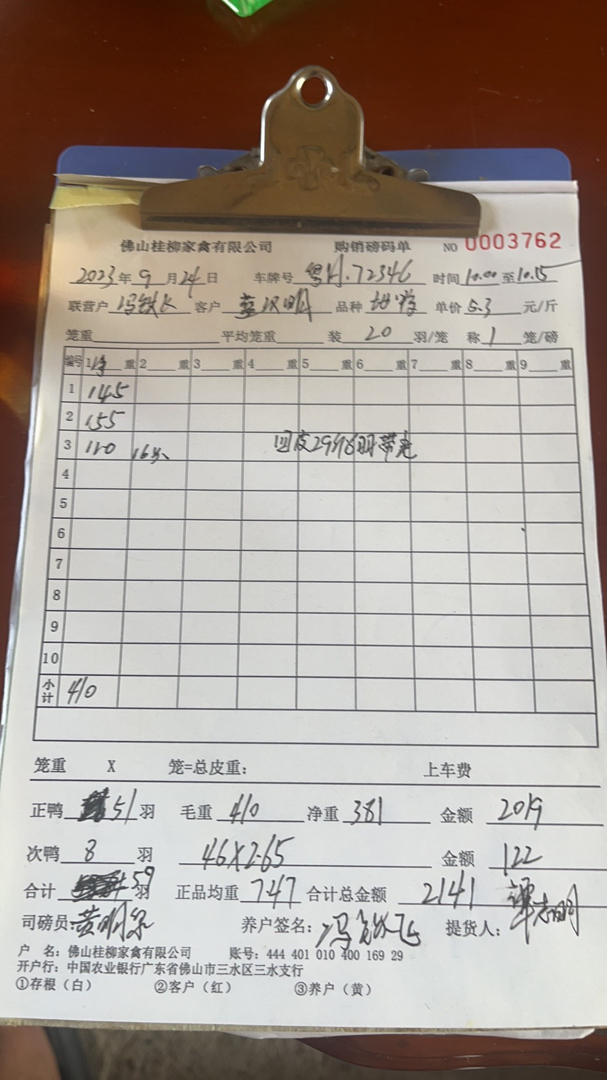 佛山桂柳家禽有限公司 购销磅码单 NO 0003762
2023年9月24日 车牌号 粤H.72346 时间10.00至10.15
联营户 客户 品种 单价5.3 元/斤
笼重 平均笼重 装 20 羽/笼 称 1 笼/磅
编号 1 重 2 重 3 重 4 重 5 重 6 重 7 重 8 重 9 重
1 145
2 155
3 110 16只 回皮29斤8羽带走
4
5
6
7
8
9
10
小计 410
笼重 X 笼=总皮重： 上车费
正鸭 51 羽 毛重 410 净重 381 金额 2019
次鸭 8 羽 46X2.65 金额 122
合计 59 羽 正品均重 7.47 合计总金额 2141
司磅员： 养户签名： 冯 飞 提货人：
户 名：佛山桂柳家禽有限公司 账号：444 401 010 400 169 29
开户行：中国农业银行广东省佛山市三水区三水支行
①存根（白） ②客户（红） ③养户（黄）